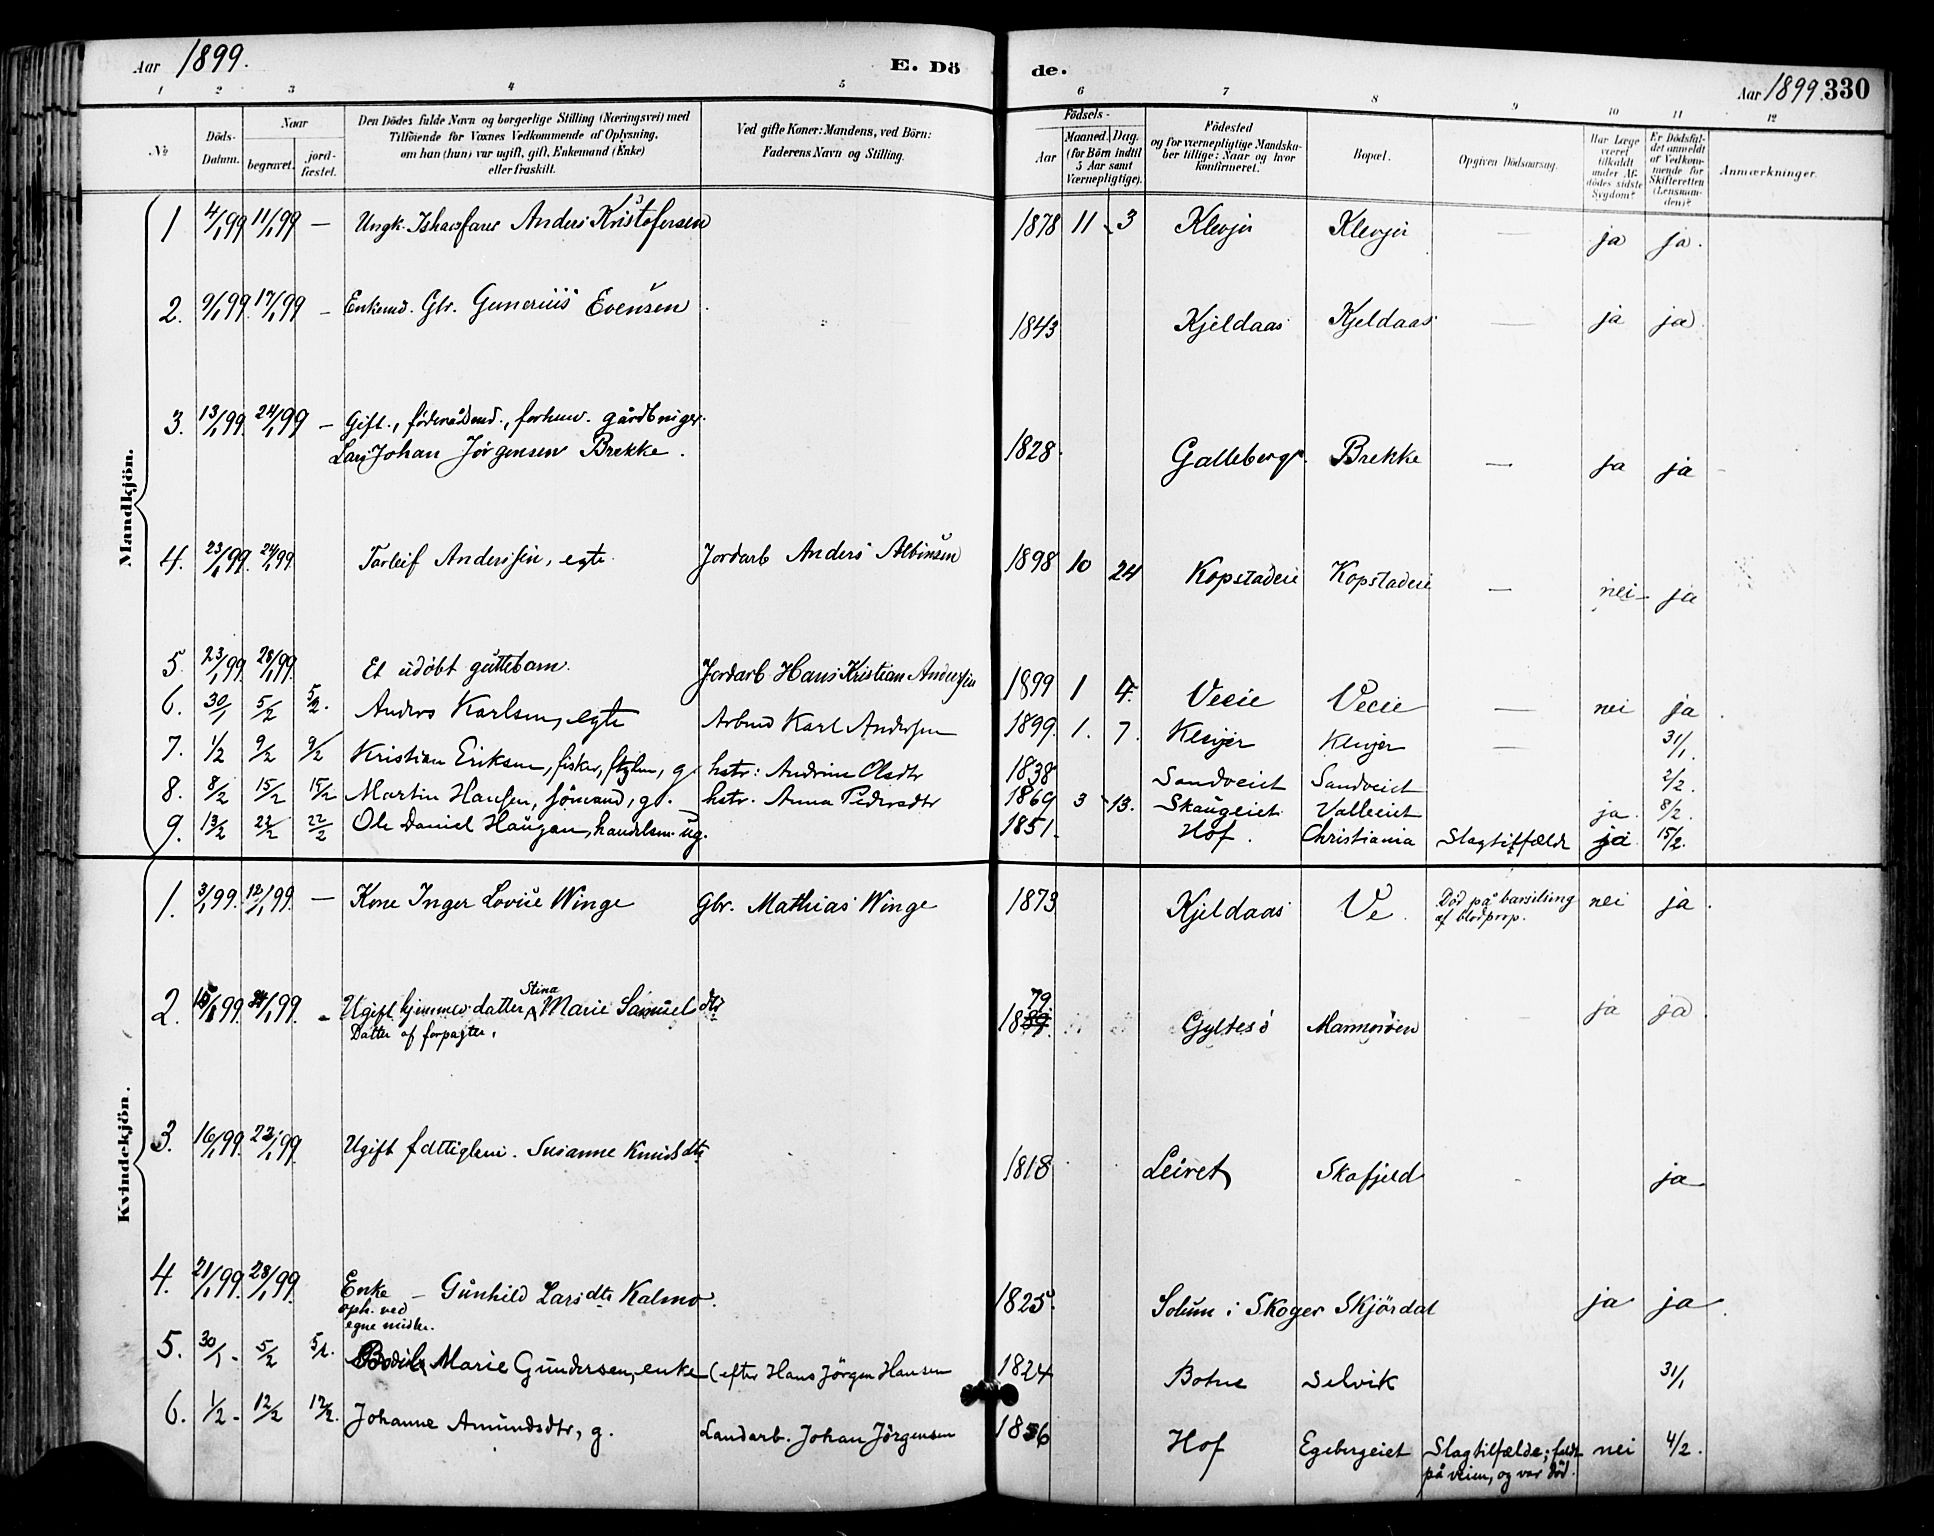 Aar 1899. E. Dö de. Aar 1899. 330
1 2 3 4 5 6 7 8 9 10 11 12
№ Döds-Datum. Naar begravet. jord-fæstet. Den Dödes fulde Navn og borgerlige Stilling (Næringsvei) med Tilföiende for Voxnes Vedkommende af Oplysning, om han (hun) var ugift, gift, Enkemand (Enke) eller fraskilt. Ved gifte Koner: Mandens, ved Börn: Faderens Navn og Stilling. Födsels- Aar Maaned. Dag. (for Börn indtil 5 Aar samt Værnepligtige). Födested og for værnepligtige Mandskaber tillige: Naar og hvor konfirmeret. Bopæl. Opgiven Dödsaarsag. Har Læge været tilkaldt under Afdödes sidste Sygdom? Er Dödsfaldet anmeldt af Vedkommende for Skifteretten (Lensmanden)? Anmærkninger.
Mandkjön.
1 4/1 99 11/1 99 — Ungk. Ishavsfarer Anders Kristofersen 1878 11 3 Klevjer Klevjer — ja ja.
2. 9/1 99. 17/1 99 — Enkemd. Gbr. Gunerius Evensen 1843 Kjeldaas Kjeldaas — ja ja
3. 13/1 99. 24/1 99 — Gift., föderådsmd., forhenv. gårdbruger.
Lars Johan Jörgensen Brekke. 1828. Galleberg. Brekke — ja ja
4. 23/1 99. 24/1 99 Torleif Anderssen, egte. Jordarb Anders Albinsen 1898 10 24 Kopstadeie Kopstadeie — nei ja
5. 23/1 99. 28/1 99. Et udöbt guttebarn. Jordarb. Hans Kristian Anderssen 1899 1 4. Veeie Veeie — nei ja.
6. 30/1 5/2 5/2. Anders Karlsen, egte Arbmd Karl Andersen 1899. 1. 7. Klevjer Klevjer — 31/1.
7. 1/2 9/2 9/2 Kristian Eriksen, fisker, g. hstr: Andrine Olsdtr 1838 Sandveiet Sandveiet 2/2.
8. 8/2 15/2 15/2 Martin Hansen, sömand, g. — hstr. Anna Pedersdtr 1869 3 13. Skaugeiet. Valleeiet ja. 8/2.
9. 13/2 22/2 22/2 Ole Daniel Haugan, handelsm. ug. 1851. Hof. Christiania Slagtilfælde ja 15/2.
Kvindekjön.
1. 3/1 99. 12/1 99. — Kone Inger Lovise Winge Gbr. Mathias Winge 1873 Kjeldaas Ve. Död på barselseng nei ja.
af blodprop.
2. 15/1 99. 24/1 99. — Ugift hjemmev. datter Stina Marie Samuelsdtr 1879. Gyltesö Mannsröen ja ja
Datter af forpagter.
3. 16/1 99. 23/1 99. Ugift fattiglem. Susanne Knudsdtr 1818 Leiret Skafjeld ja
4. 21/1 99. 28/1 99. Enke — Gunhild Larsdtr Kalmo. 1825. Solum i Skoger Skjördal ja ja
oph. ved
egne midler.
5. 30/1. 5/2 Bodil Marie Gundersen, enke (efter Hans Jörgen Hansen 1824 Botne Selvik 31/1
6. 1/2. 12/2 12/2. Johanne Amundsdtr, g. Landarb. Johan Jörgensen 1856 Hof Egebergeiet Slagtilfælde; faldt nei 4/2.
på veien, og var död.